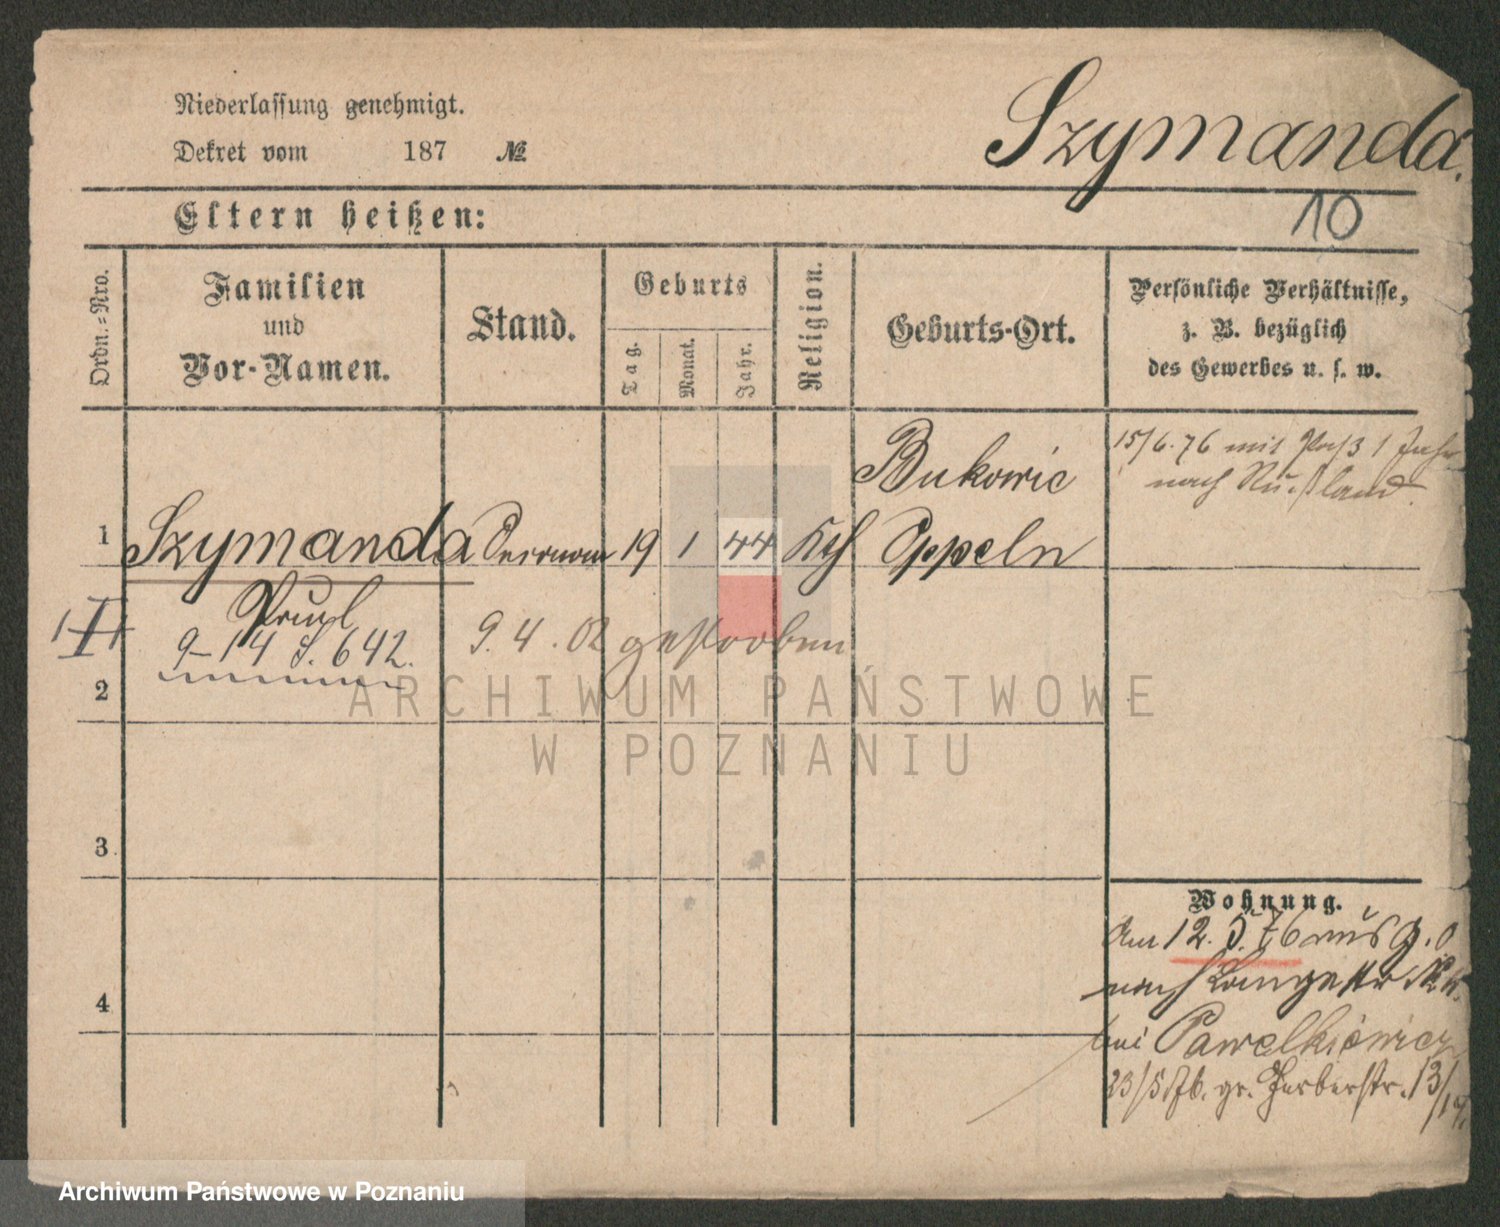 Niederlassung genehmigt.
Dekret vom 187 №
Szymanda.
10
Eltern heißen:
Ordn.-Nro.
Familien
und
Vor-Namen.
Stand.
Geburts
Tag.
Monat.
Jahr.
Religion.
Geburts-Ort.
Persönliche Verhältnisse,
z. B. bezüglich
des Gewerbes u. s. w.
15/6.76 mit Paß 1 Jahr
nach Rußland.
Bukowic
1 Szymanda 19 1 44 Kth Oppeln
Paul
9-14 S. 642. 9.4.02 gestorben
2
3
4
Wohnung.
Am 12. 5. 76 aus
nach Langestr
bei Pawelkiewicz
23/5 76. gr. Gerberstr. 13/14
ARCHIWUM PAŃSTWOWE
W POZNANIU
Archiwum Państwowe w Poznaniu